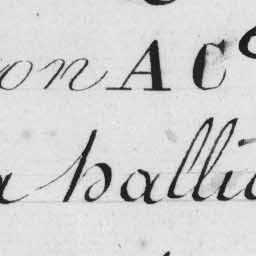 on A C
a halli